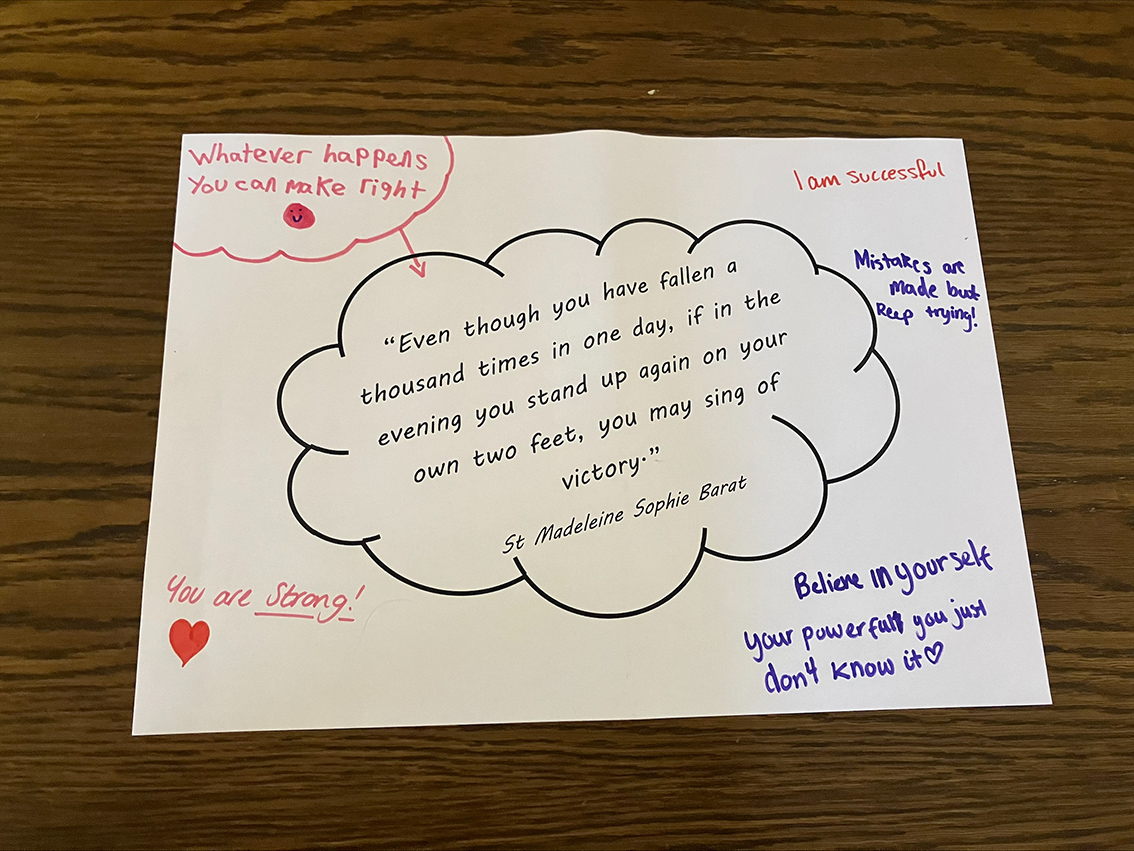 Whatever happens
You can make right
I am successful
Mistakes are
made but
keep trying!
“Even though you have fallen a
thousand times in one day, if in the
evening you stand up again on your
own two feet, you may sing of
victory.”
St Madeleine Sophie Barat
You are Strong!
Believe in yourself
your powerfull you just
don't know it